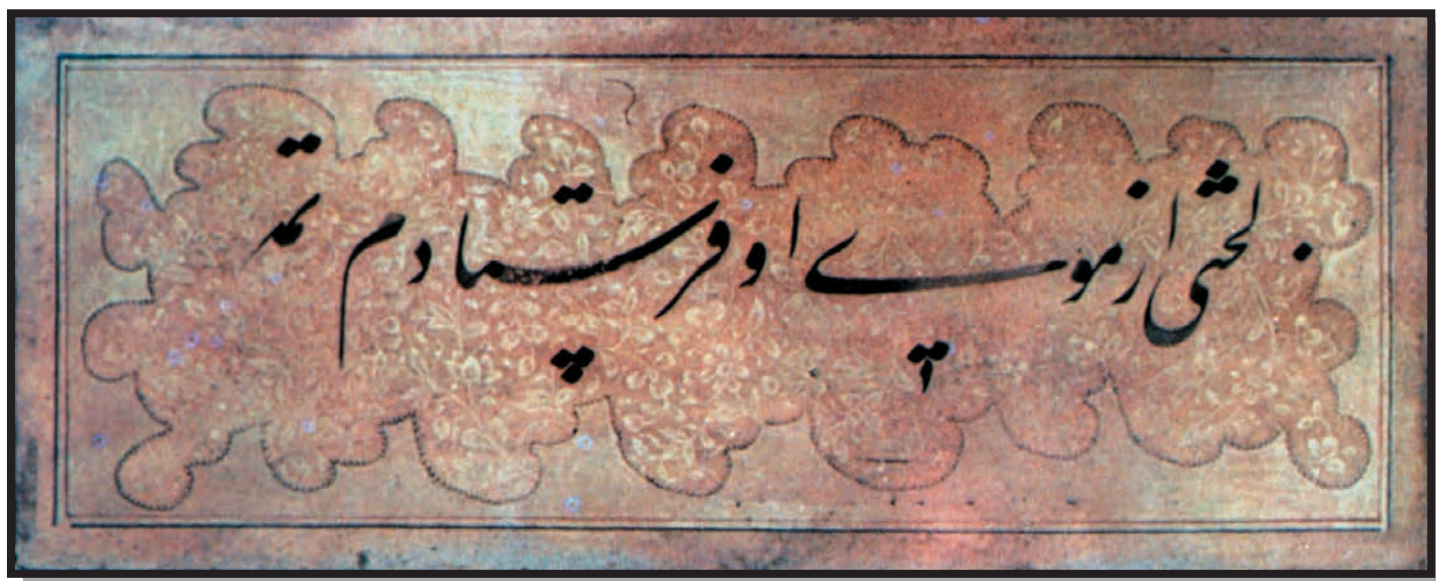 لختی از مویِ او فرستادم